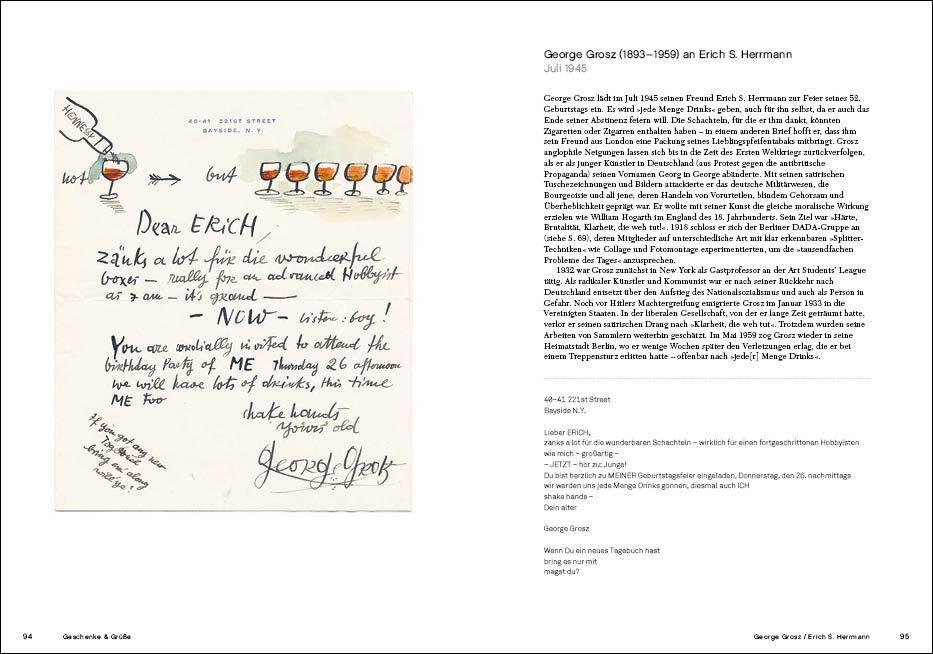 HENNESSY
40-41 221ST STREET
BAYSIDE, N.Y.
not
but
Dear ERICH,
zänks a lot für die wonderful
boxes – really for an advanced Hobbyist
as I am – it's grand —
– NOW – listen: boy!
You are cordially invited to attend the
birthday Party of ME Thursday 26 afternoon
we will have lots of drinks, this time
ME too
shake hands
yours old
George Grosz
If you got any new
bring em along
will ya?
94
Geschenke & Grüße
George Grosz (1893–1959) an Erich S. Herrmann
Juli 1945
George Grosz lädt im Juli 1945 seinen Freund Erich S. Herrmann zur Feier seines 52.
Geburtstags ein. Es wird »jede Menge Drinks« geben, auch für ihn selbst, da er auch das
Ende seiner Abstinenz feiern will. Die Schachteln, für die er ihm dankt, könnten
Zigaretten oder Zigarren enthalten haben – in einem anderen Brief hofft er, dass ihm
sein Freund aus London eine Packung seines Lieblingspfeifentabaks mitbringt. Grosz
anglophile Neigungen lassen sich bis in die Zeit des Ersten Weltkriegs zurückverfolgen,
als er als junger Künstler in Deutschland (aus Protest gegen die antibritische
Propaganda) seinen Vornamen Georg in George abänderte. Mit seinen satirischen
Tuschezeichnungen und Bildern attackierte er das deutsche Militärwesen, die
Bourgeoisie und all jene, deren Handeln von Vorurteilen, blindem Gehorsam und
Überheblichkeit geprägt war. Er wollte mit seiner Kunst die gleiche moralische Wirkung
erzielen wie William Hogarth im England des 18. Jahrhunderts. Sein Ziel war »Härte,
Brutalität, Klarheit, die weh tut!«. 1918 schloss er sich der Berliner DADA-Gruppe an
(siehe S. 69), deren Mitglieder auf unterschiedliche Art mit klar erkennbaren »Splitter-
Techniken« wie Collage und Fotomontage experimentierten, um die »tausendfachen
Probleme des Tages« anzusprechen.
1932 war Grosz zunächst in New York als Gastprofessor an der Art Students' League
tätig. Als radikaler Künstler und Kommunist war er nach seiner Rückkehr nach
Deutschland entsetzt über den Aufstieg des Nationalsozialismus und auch als Person in
Gefahr. Noch vor Hitlers Machtergreifung emigrierte Grosz im Januar 1933 in die
Vereinigten Staaten. In der liberalen Gesellschaft, von der er lange Zeit geträumt hatte,
verlor er seinen satirischen Drang nach »Klarheit, die weh tut«. Trotzdem wurden seine
Arbeiten von Sammlern weiterhin geschätzt. Im Mai 1959 zog Grosz wieder in seine
Heimatstadt Berlin, wo er wenige Wochen später den Verletzungen erlag, die er bei
einem Treppensturz erlitten hatte – offenbar nach »jede[r] Menge Drinks«.
40–41 221st Street
Bayside N.Y.
Lieber ERICH,
zanks a lot für die wunderbaren Schachteln – wirklich für einen fortgeschrittenen Hobbyisten
wie mich – großartig –
– JETZT – hör zu: Junge!
Du bist herzlich zu MEINER Geburtstagsfeier eingeladen, Donnerstag, den 26. nachmittags
wir werden uns jede Menge Drinks gönnen, diesmal auch ICH
shake hands –
Dein alter
George Grosz
Wenn Du ein neues Tagebuch hast
bring es nur mit
magst du?
George Grosz / Erich S. Herrmann
95